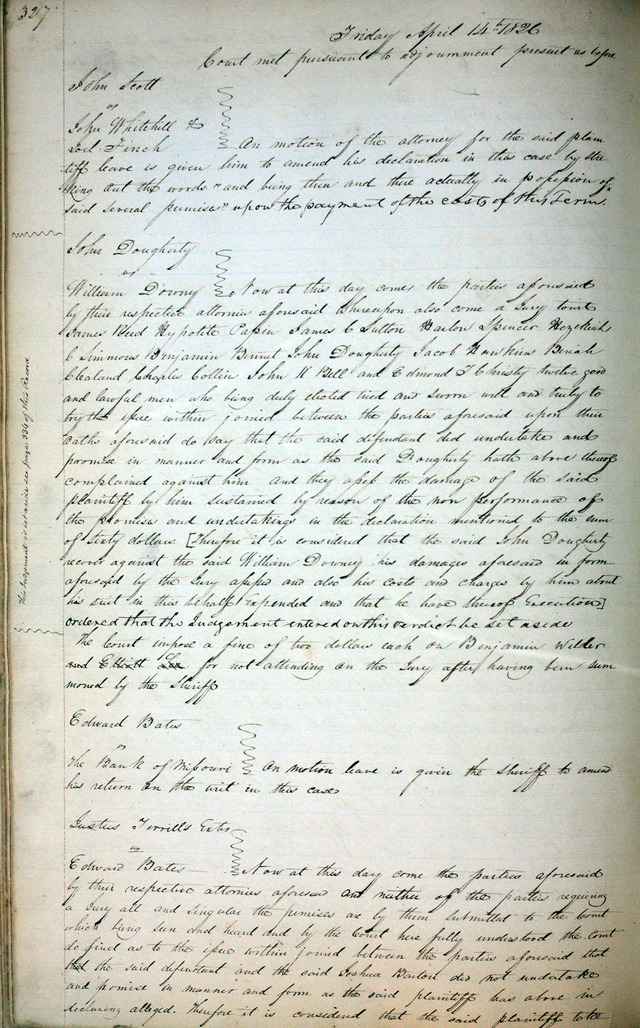 327
Friday April 14th 1826
Court met pursuant to adjournment present as before
John Scott
vs
John Whitehill &
Joel Finch On motion of the attorney for the said plain
tiff leave is given him to amend his declaration in this case by stri
king out the words "and being then and there actually in possession of
said several premises" upon the payment of the costs of this Term.
John Dougherty
vs
William Downey Now at this day comes the parties aforesaid
by their respective attornies aforesaid Whereupon also come a Jury towit
James Reed Hypolite Papin James C Sutton Harlow Spencer Hezekiah
C Simmons Benjamin John Dougherty Jacob Hawkins Beriah
Cleland Charles Collin John H Bell and Edmond T Christy twelve good
and lawful men who being duly elected tried and sworn well and truly to
try the issue within joined between the parties aforesaid upon their
oaths aforesaid do say that the said defendant did undertake and
promise in manner and form as the said Dougherty hath above thereof
complained against him And they assess the damage of the said
plaintiff by him sustained by reason of the non performance of
the promises and undertakings in the declaration mentioned to the sum
of Sixty dollars [Therefore it is considered that the said John Dougherty
recover against the said William Downey his damages aforesaid in form
aforesaid by the Jury assessed and also his costs and charges by him about
his suit in this behalf Expended and that he have thereof Execution]
ordered that the Judgement entered on this verdict be set aside
The Court impose a fine of two dollars each on Benjamin Wilder
and for not attending on the Jury after having been sum
moned by the Sheriff
This Judgment is set aside see page 334 of this Record
Edward Bates
vs
The Bank of Missouri On motion leave is given the Sheriff to amend
his return on the writ in this case
Justus Terrills Exts
vs
Edward Bates Now at this day come the parties aforesaid
by their respective attornies aforesaid and neither of the parties requiring
a Jury all and singular the premises are by them submitted to the Court
which being seen and heard and by the Court here fully understood the Court
do find as to the issue within joined between the parties aforesaid that
that the said defendant and the said Joshua Barton did not undertake
and promise in manner and form as the said plaintiff has above in
declaring alleged. Therefore it is considered that the said plaintiff take